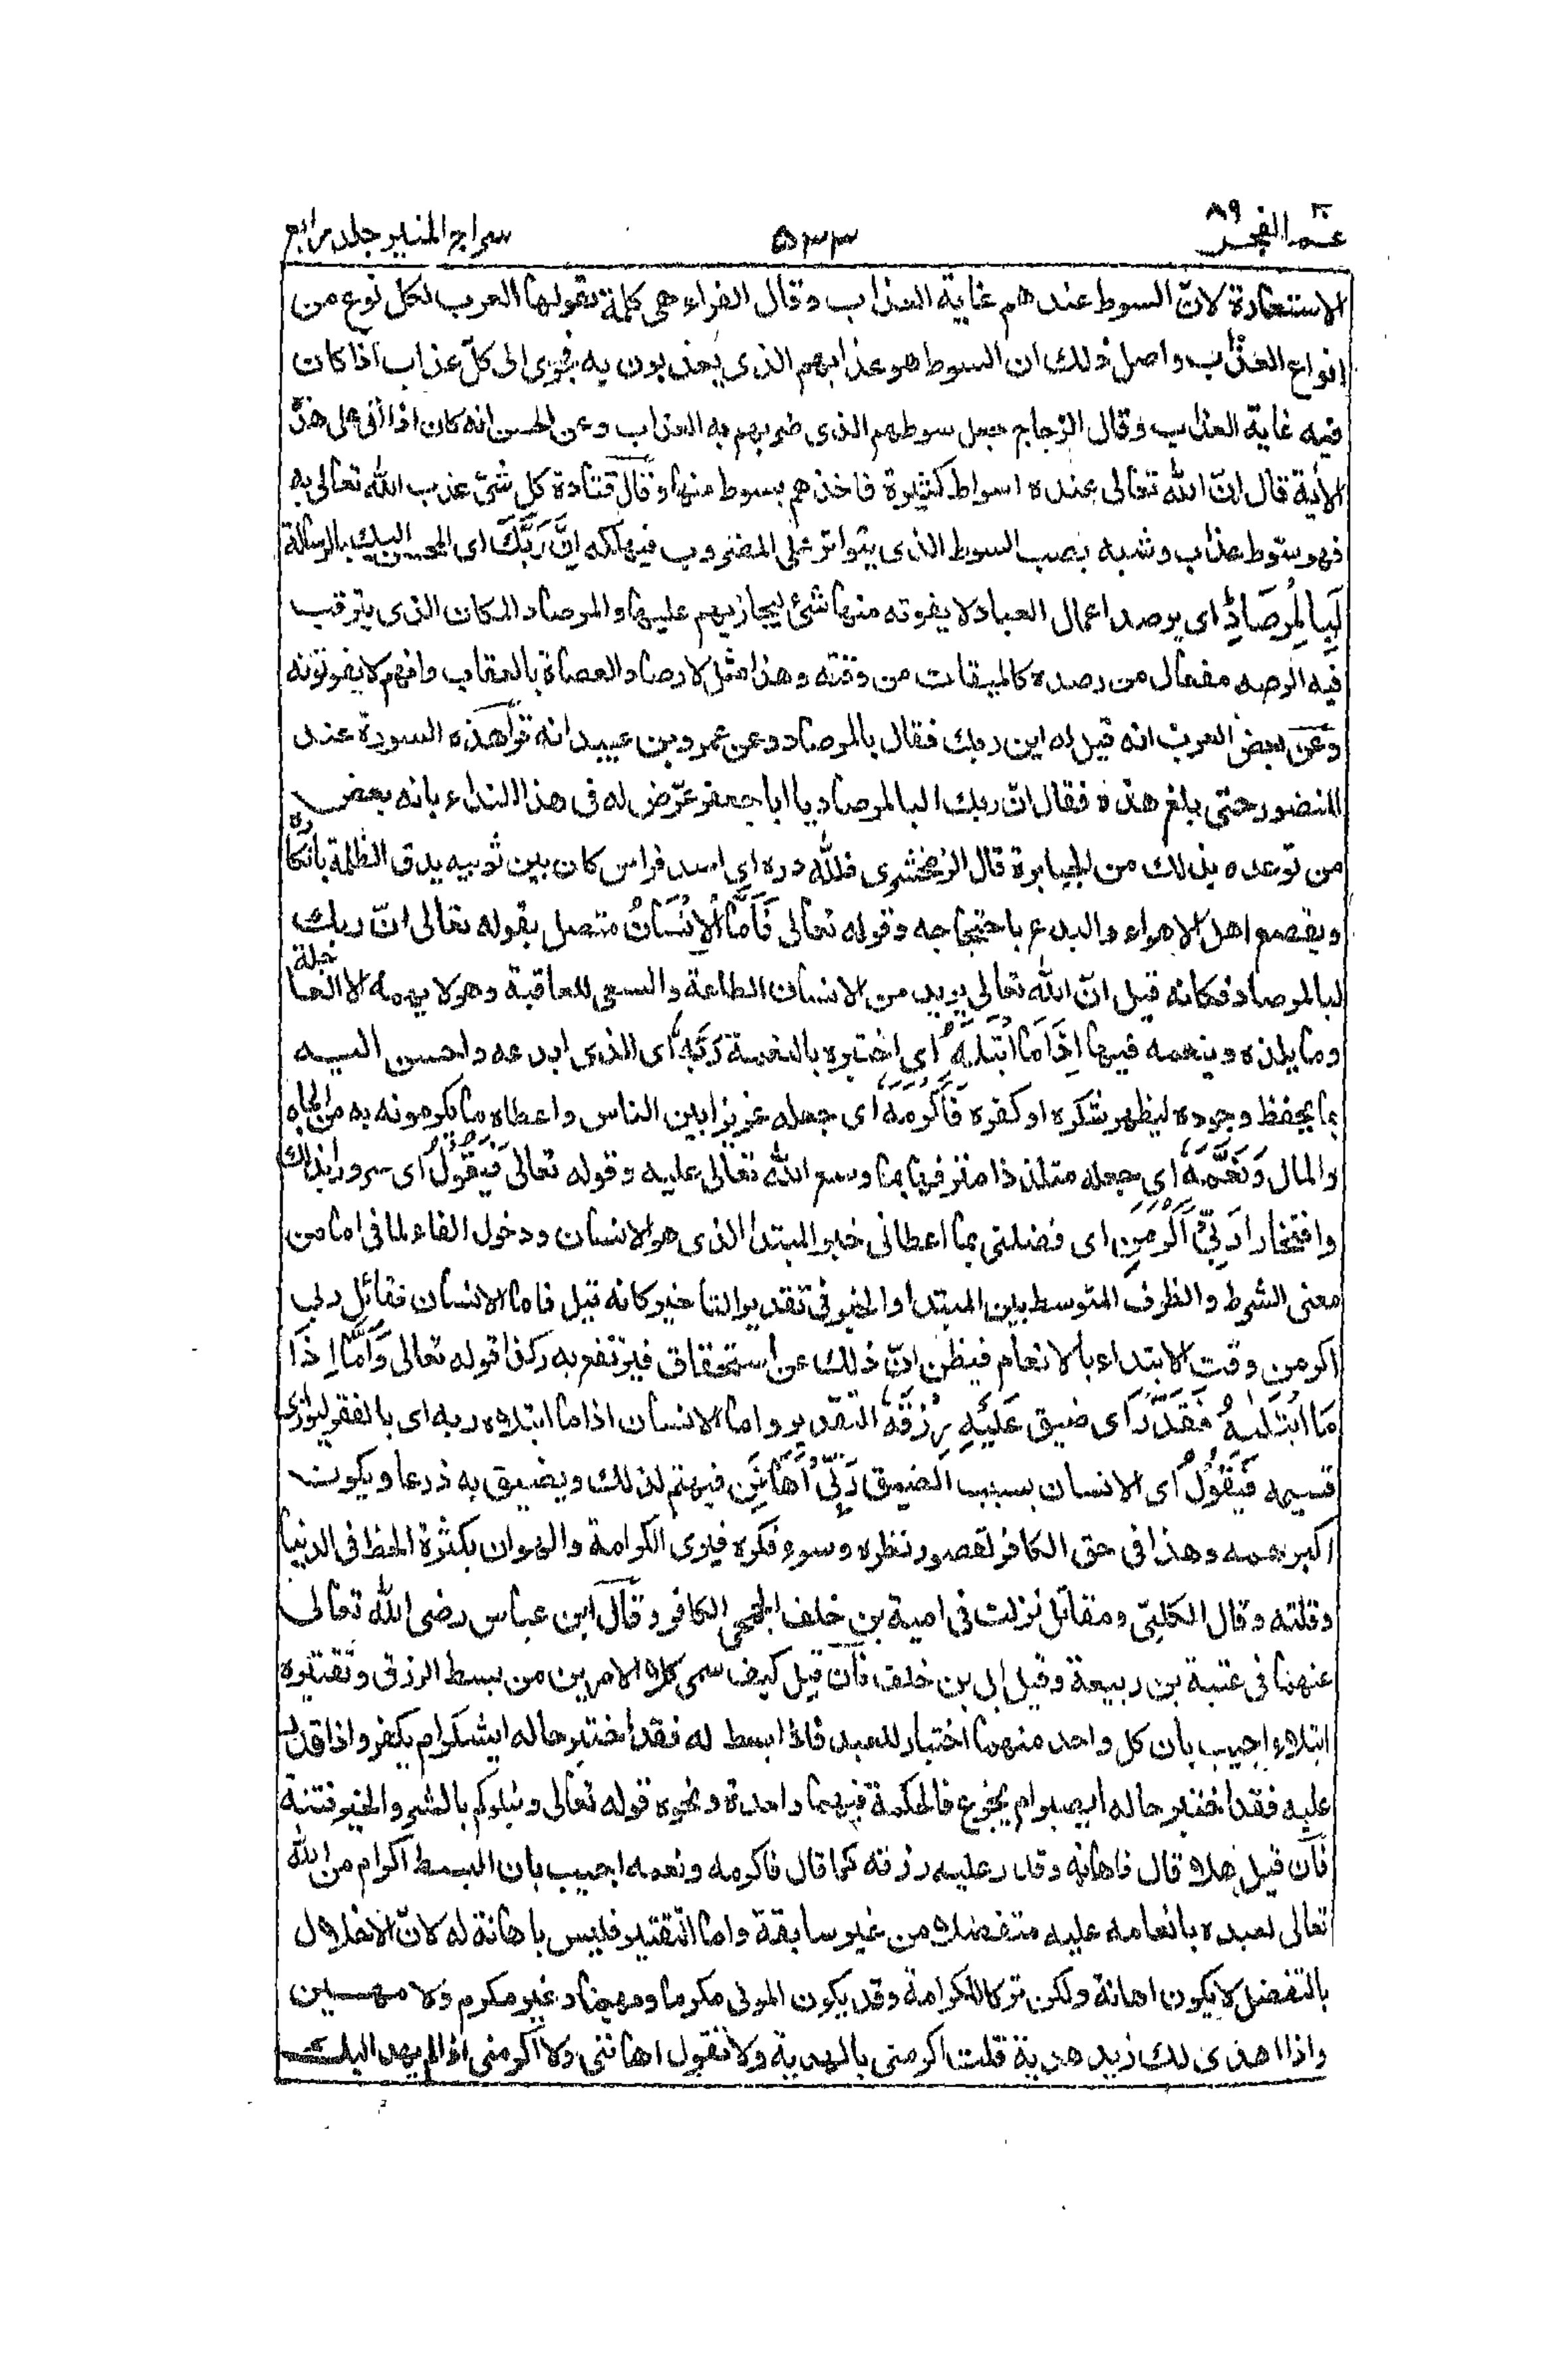 عم الفجر ٨٩ ٣٠
٥٣٣
سراج المنير جلد رابع
الاستعارة لانّ السوط عندهم غاية العذاب وقال الفراء هى كلمة تقولها العرب لكل نوع من
انواع العذاب واصل ذلك ان السوط هو عذابهم الذى يعذبون به فجرى الى كلّ عذاب اذا كان
فيه غاية العذاب وقال الزجاج جعل سوطهم الذى ضربهم به العذاب وعن الحسن انه كان اذا اتى على هذه
الأية قال انّ الله تعالى عنده اسواط كثيرة فاخذهم بسوط منها وقال قتادة كل شئ عذب الله تعالى به
فهو سوط عذاب وشبه بصب السوط الذى يتواتر على المضروب فيهلكه اِنَّ رَبَّكَ اى المحسن اليك بالرسالة
لَبِالْمِرْصَادِ اى يرصد اعمال العباد لا يفوته منها شئ ليجازيهم عليها والمرصاد المكان الذى يترقب
فيه الرصد مفعال من رصده كالميقات من وقته وهذا مثل لارصاد العصاة بالعقاب وانهم لا يفوتونه
وعن بعض العرب انه قيل له اين ربك فقال بالمرصاد وعن عمرو بن عبيد انه قرأ هذه السورة عند
المنصور حتى بلغ هذه فقال انّ ربك لبالمرصاد يا ابا جعفر عرّض له فى هذا النداء بانه بعض
من توعده بذلك من الجبابرة قال الزمخشرى فلله دره اى اسد فراس كان بين ثوبيه يدق الظلمة بانكاره
ويقصع اهل الاهواء والبدع باحتجاجه وقوله تعالى فَاَمَّا الْاِنْسَانُ متصل بقوله تعالى انّ ربك
لبالمرصاد فكانه قيل انّ الله تعالى يريد من الانسان الطاعة والسعى للعاقبة وهو لا يهمه الا العاجلة
وما يلذه وينعمه فيها اِذَا مَا ابْتَلٰىهُ اى اختبره بالنعمة رَبُّهٗ اى الذى ابدعه واحسن اليه
بما يحفظ وجوده ليظهر شكره او كفره فَاَكْرَمَهٗ اى جعله عزيزا بين الناس واعطاه ما يكرمونه به من الجاه
والمال وَنَعَّمَهٗ اى جعله متلذذا مترفها بما وسع الله تعالى عليه وقوله تعالى فَيَقُوْلُ اى سرورا بذلك
وافتخارا رَبِّىْٓ اَكْرَمَنِ اى فضلنى بما اعطانى خبر المبتدأ الذى هو الانسان ودخول الفاء لما فى اما من
معنى الشرط والظرف المتوسط بين المبتدا والخبر فى تقدير التاخير كانه قيل فاما الانسان فقائل ربى
اكرمن وقت الابتلاء بالانعام فيظن انّ ذلك عن استحقاق فيرتفع به وكذا قوله تعالى وَاَمَّا اِذَا
مَا ابْتَلٰىهُ فَقَدَرَ اى ضيق عَلَيْهِ رِزْقَهٗ التقدير واما الانسان اذا ما ابتلاه ربه اى بالفقر ليوازى
قسيمه فَيَقُوْلُ اى الانسان بسبب الضيق رَبِّىْٓ اَهَانَنِ فيهتم لذلك ويضيق به ذرعا ويكون
اكبر همه وهذا فى حق الكافر لقصور نظره وسوء فكره فيرى الكرامة والهوان بكثرة الحظ فى الدنيا
وقلته وقال الكلبىّ ومقاتل نزلت فى امية بن خلف الجمحى الكافر وقال ابن عباس رضى الله تعالى
عنهما فى عتبة بن ربيعة وقيل ابى بن خلف فان قيل كيف سمى كلا الامرين من بسط الرزق وتقتيره
ابتلاء اجيب بان كل واحد منهما اختبار للعبد فاذا بسط له فقد اختبر حاله ايشكر ام يكفر واذا قدر
عليه فقد اختبر حاله ايصبر ام يجزع فالحكمة فيهما واحدة ونحوه قوله تعالى ونبلوكم بالشر والخير فتنة
فان قيل هلا قال فاهانه وقدر عليه رزقه كما قال فاكرمه ونعمه اجيب بان البسط اكرام من الله
تعالى لعبده بانعامه عليه متفضلا من غير سابقة واما التقتير فليس باهانة له لانّ الاخلال
بالتفضل لا يكون اهانة ولكن تركا للكرامة وقد يكون المولى مكرما ومهينا وغير مكرم ولا مهين
واذا اهدى لك زيد هدية قلت اكرمنى بالهدية ولا تقول اهاننى ولا اكرمنى اذا لم يهد اليك